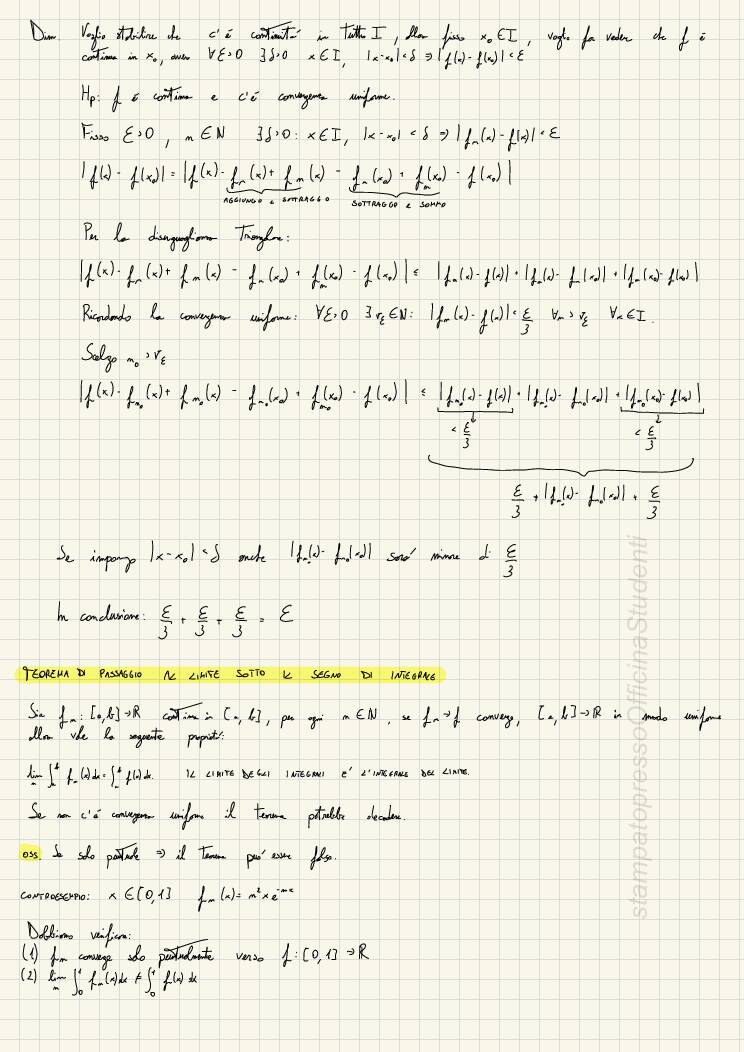 Dim. Voglio stabilire che c'é continuitá in tutto I, allora fisso x₀ ∈ I, voglio far vedere che f é
continua in x₀, ovvero ∀ε>0 ∃δ>0 x∈I, |x-x₀|<δ ⇒ |f(x)-f(x₀)|<ε
Hp: f é continua e c'é convergenza uniforme.
Fisso ε>0, n∈N ∃δ>0: x∈I, |x-x₀|<δ ⇒ |fₙ(x)-f(x)|<ε
|f(x)-f(x₀)| = |f(x)-fₙ(x)+fₙ(x)-fₙ(x₀)+fₙ(x₀)-f(x₀)|
AGGIUNGO E SOTTRAGGO SOTTRAGGO E SOMMO
Per la disuguaglianza Triangolare:
|f(x)-fₙ(x)+fₙ(x)-fₙ(x₀)+fₙ(x₀)-f(x₀)| ≤ |fₙ(x)-f(x)|+|fₙ(x)-fₙ(x₀)|+|fₙ(x₀)-f(x₀)|
Ricordando la convergenza uniforme: ∀ε>0 ∃ν_ε∈N: |fₙ(x)-f(x)|<ε/3 ∀n>ν_ε ∀x∈I.
Scelgo n₀>ν_ε
|f(x)-f_n₀(x)+f_n₀(x)-f_n₀(x₀)+f_n₀(x₀)-f(x₀)| ≤ |f_n₀(x)-f(x)|+|f_n₀(x)-f_n₀(x₀)|+|f_n₀(x₀)-f(x₀)|
<ε/3 <ε/3
ε/3 + |f_n₀(x)-f_n₀(x₀)| + ε/3
Se impongo |x-x₀|<δ anche |f_n₀(x)-f_n₀(x₀)| sará minore di ε/3
In conclusione: ε/3 + ε/3 + ε/3 = ε
TEOREMA DI PASSAGGIO AL LIMITE SOTTO IL SEGNO DI INTEGRALE
Sia fₙ: [a,b]→R continua in [a,b], per ogni n∈N, se fₙ→f converge, [a,b]→R in modo uniforme
allora vale la seguente proprietá:
lim_n ∫_a^b fₙ(x)dx = ∫_a^b f(x)dx. IL LIMITE DEGLI INTEGRALI E' L'INTEGRALE DEL LIMITE.
Se non c'é convergenza uniforme il teorema potrebbe decadere.
OSS. Se solo puntuale ⇒ il teorema puó essere falso.
CONTROESEMPIO: x∈[0,1] fₙ(x)= n²xe^{-nx}
Dobbiamo verificare:
(1) fₙ converge solo puntualmente verso f: [0,1]→R
(2) lim_n ∫_0^1 fₙ(x)dx ≠ ∫_0^1 f(x)dx
stampatopressoOfficinaStudenti